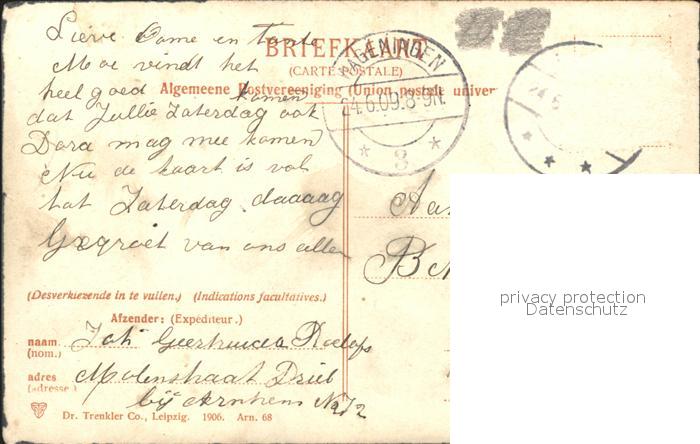 Lieve Oome en tante
BRIEFKAART
Moe vindt het
(CARTE POSTALE)
heel goed
Algemeene Postvereeniging (Union postale univer
komen
dat Jullie Zaterdag ook
Dora mag mee komen
Nu de kaart is vol
tot Zaterdag daaaag
Gegroet van ons allen
WAGENINGEN
24.6.09.8-9N.
* 3 *
24.6
* *
Aa
B
privacy protection
Datenschutz
(Desverkiezende in te vullen.) (Indications facultatives.)
Afzender: (Expéditeur.)
naam
(nom.)
Joh Geertruida Roelofs
adres
(adresse)
Molenstraat Driel
bij Arnhem
Dr. Trenkler Co., Leipzig. 1906. Arn. 68